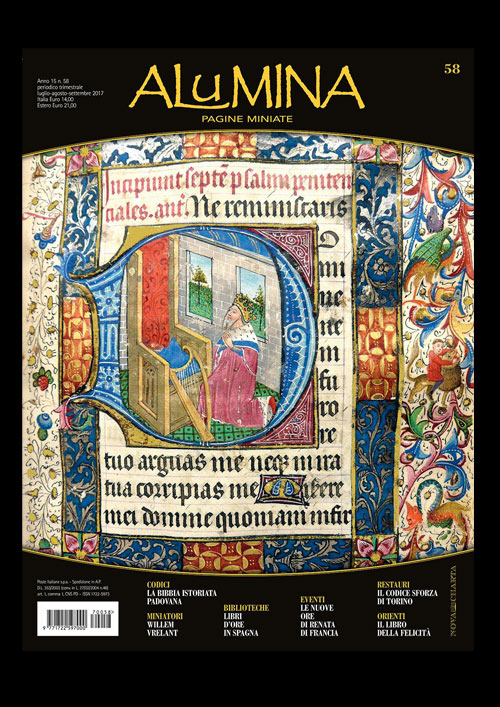 Anno 15 n. 58
periodico trimestrale
luglio-agosto-settembre 2017
Italia Euro 14,00
Estero Euro 21,00
ALuMINA
PAGINE MINIATE
58
Incipiunt septē psalmi peniten
ciales. antᵉ. Ne reminiscaris
D
omi
ne
ne
in
furo
re
tuo arguas me neqꝫ in ira
tua corripias me Miserere
mei domine quoniam infir
Poste Italiane s.p.a. - Spedizione in A.P.
D.L. 353/2003 (conv. in L. 27/02/2004 n.46)
art. 1, comma 1, CNS PD - ISSN 1722-5973
70058
9 771722 597000
CODICI
LA BIBBIA ISTORIATA
PADOVANA
MINIATORI
WILLEM
VRELANT
BIBLIOTECHE
LIBRI
D'ORE
IN SPAGNA
EVENTI
LE NUOVE
ORE
DI RENATA
DI FRANCIA
RESTAURI
IL CODICE SFORZA
DI TORINO
ORIENTI
IL LIBRO
DELLA FELICITÀ
NOVA CHARTA